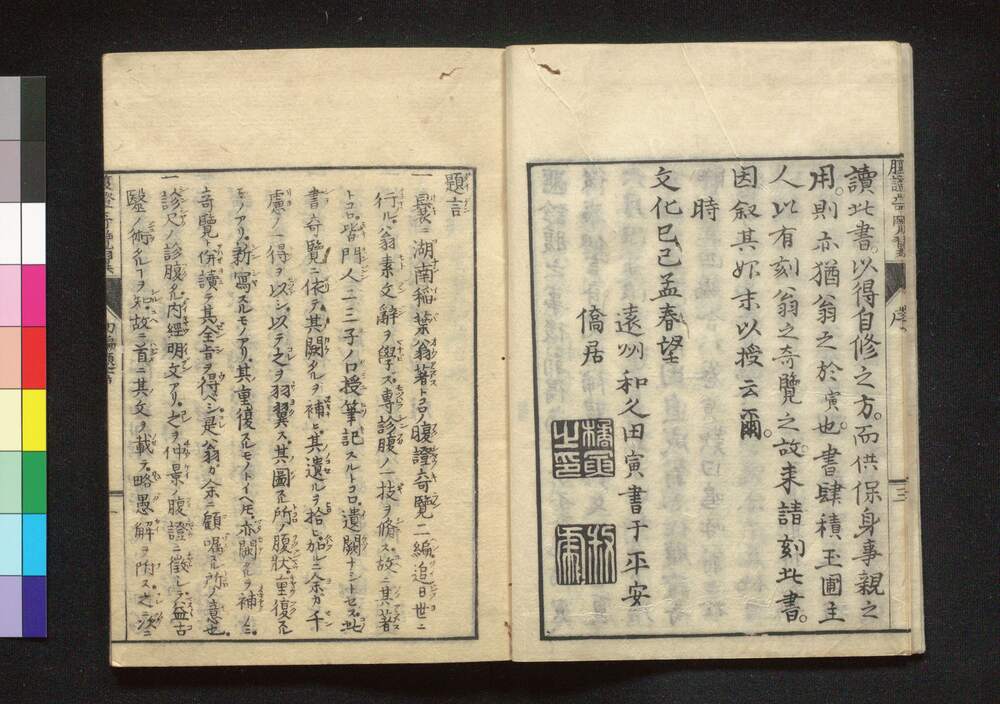 讀此書。以得自修之方。而供保身事親之
用。則亦猶翁之於寅也。書肆積玉圃主
人以有刻翁之奇覽之故。来請刻此書。
因叙其始末以授云爾。
時
文化己巳孟春望
遠州 和久田寅書于平安
僑居
序
三
題言
一 曩ニ湖南稲葉翁著トコロノ腹證竒覧二編追日世ニ
行ル。翁素文辭ヲ學ス。專診腹ノ一技ヲ脩ス。故ニ其著
トコロ。皆門人二三子ノ口授筆記スルトコロ。遺闕ナシトセズ。此
書竒覧ニ依テ。其闕タルヲ補ヒ其遺ルヲ拾ヒ。加ルニ余カ千
慮ノ一得ヲ以シ。以テ之ヲ羽翼ス。其圖スル所ノ腹状。重復スル
モノアリ。新寫スルモノアリ。其重復スルモノトイヘ𪜈。亦闕タルヲ補ノミ。
竒覧ト併讀テ其全旨ヲ得ベシ。是翁ガ余ニ顧嘱スル所ノ意也。
一 診尺ノ診腹タル。内經明文アリ。之ヲ仲景ノ腹證ニ徴シテ。益古
醫ノ術タルヿヲ知。故ニ首ニ其文ヲ載ス。略愚解ヲ附ス。之ニ次ニ